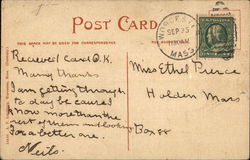 POST CARD
THIS SPACE MAY BE USED FOR CORRESPONDENCE
WORCESTER
SEP 25
MASS.
Recieved Card O.K.
Many thanks
I am getting through
to day be cause I
know more than the
rest of them and looking
for a better one.
Miss Ethel Pierce
Holden Mass
Box 88